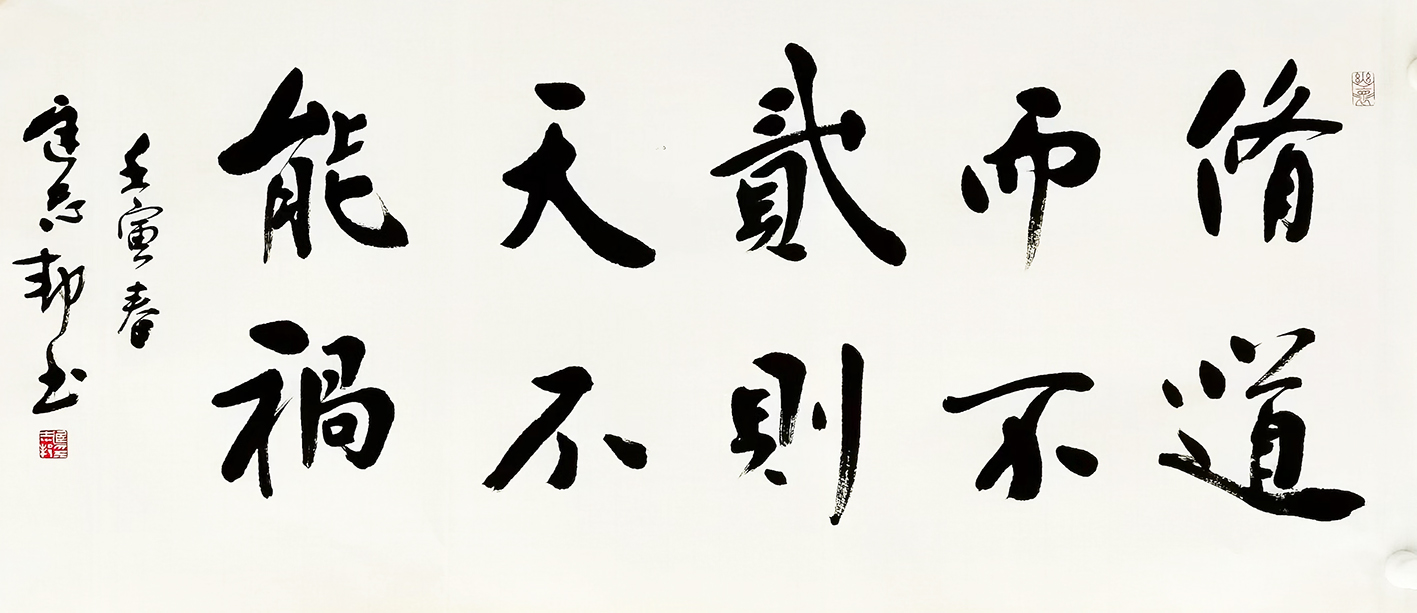 脩道
而不
貳則
天不
能禍
壬寅春
志邦书